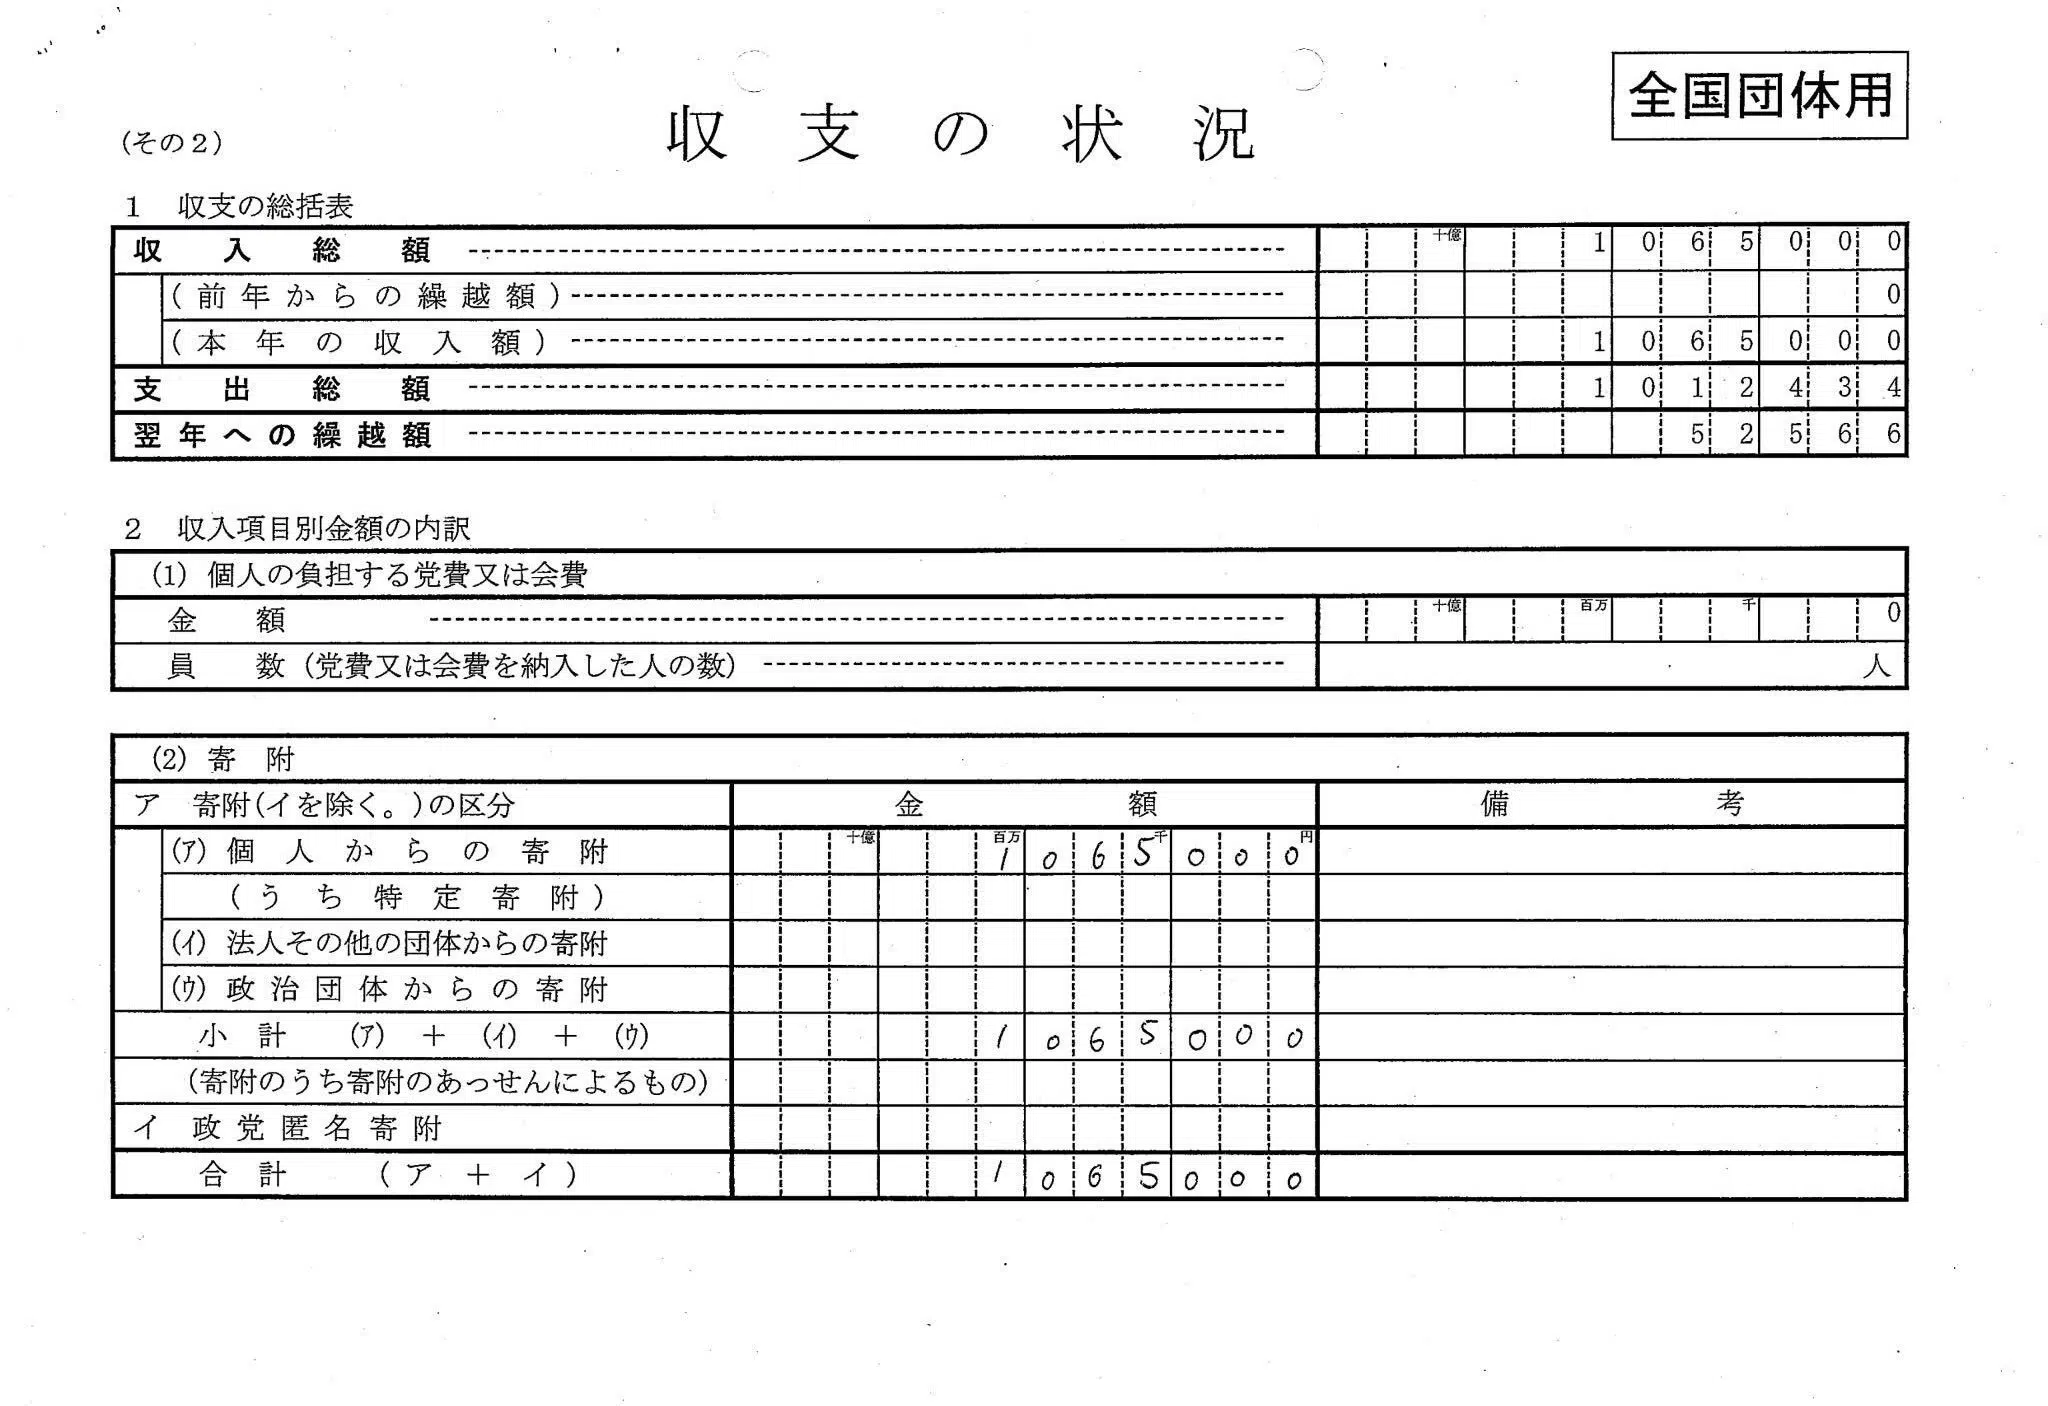 全国団体用
(その2)
収支の状況
1 収支の総括表
収入総額 十億 1065000
(前年からの繰越額) 0
(本年の収入額) 1065000
支出総額 1012434
翌年への繰越額 52566
2 収入項目別金額の内訳
(1) 個人の負担する党費又は会費
金額 十億 百万 千 0
員数 (党費又は会費を納入した人の数) 人
(2) 寄附
ア 寄附(イを除く。)の区分 金額 備考
(ア) 個人からの寄附 十億 百万 千 円 1065000
(うち特定寄附)
(イ) 法人その他の団体からの寄附
(ウ) 政治団体からの寄附
小計 (ア) + (イ) + (ウ) 1065000
(寄附のうち寄附のあっせんによるもの)
イ 政党匿名寄附
合計 (ア + イ) 1065000